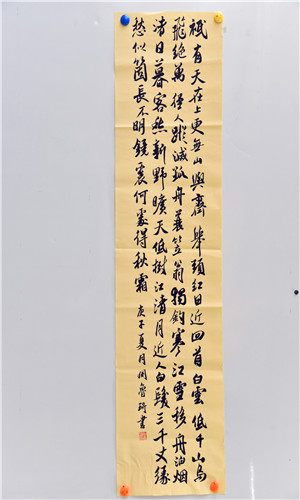 祇有天在上更無山與齊舉頭紅日近回首白雲低千山鳥
飛絕萬徑人蹤滅孤舟蓑笠翁獨釣寒江雪移舟泊煙
渚日暮客愁新野曠天低樹江清月近人白髮三千丈緣
愁似箇長不明鏡裏何處得秋霜
庚子夏月周魯書